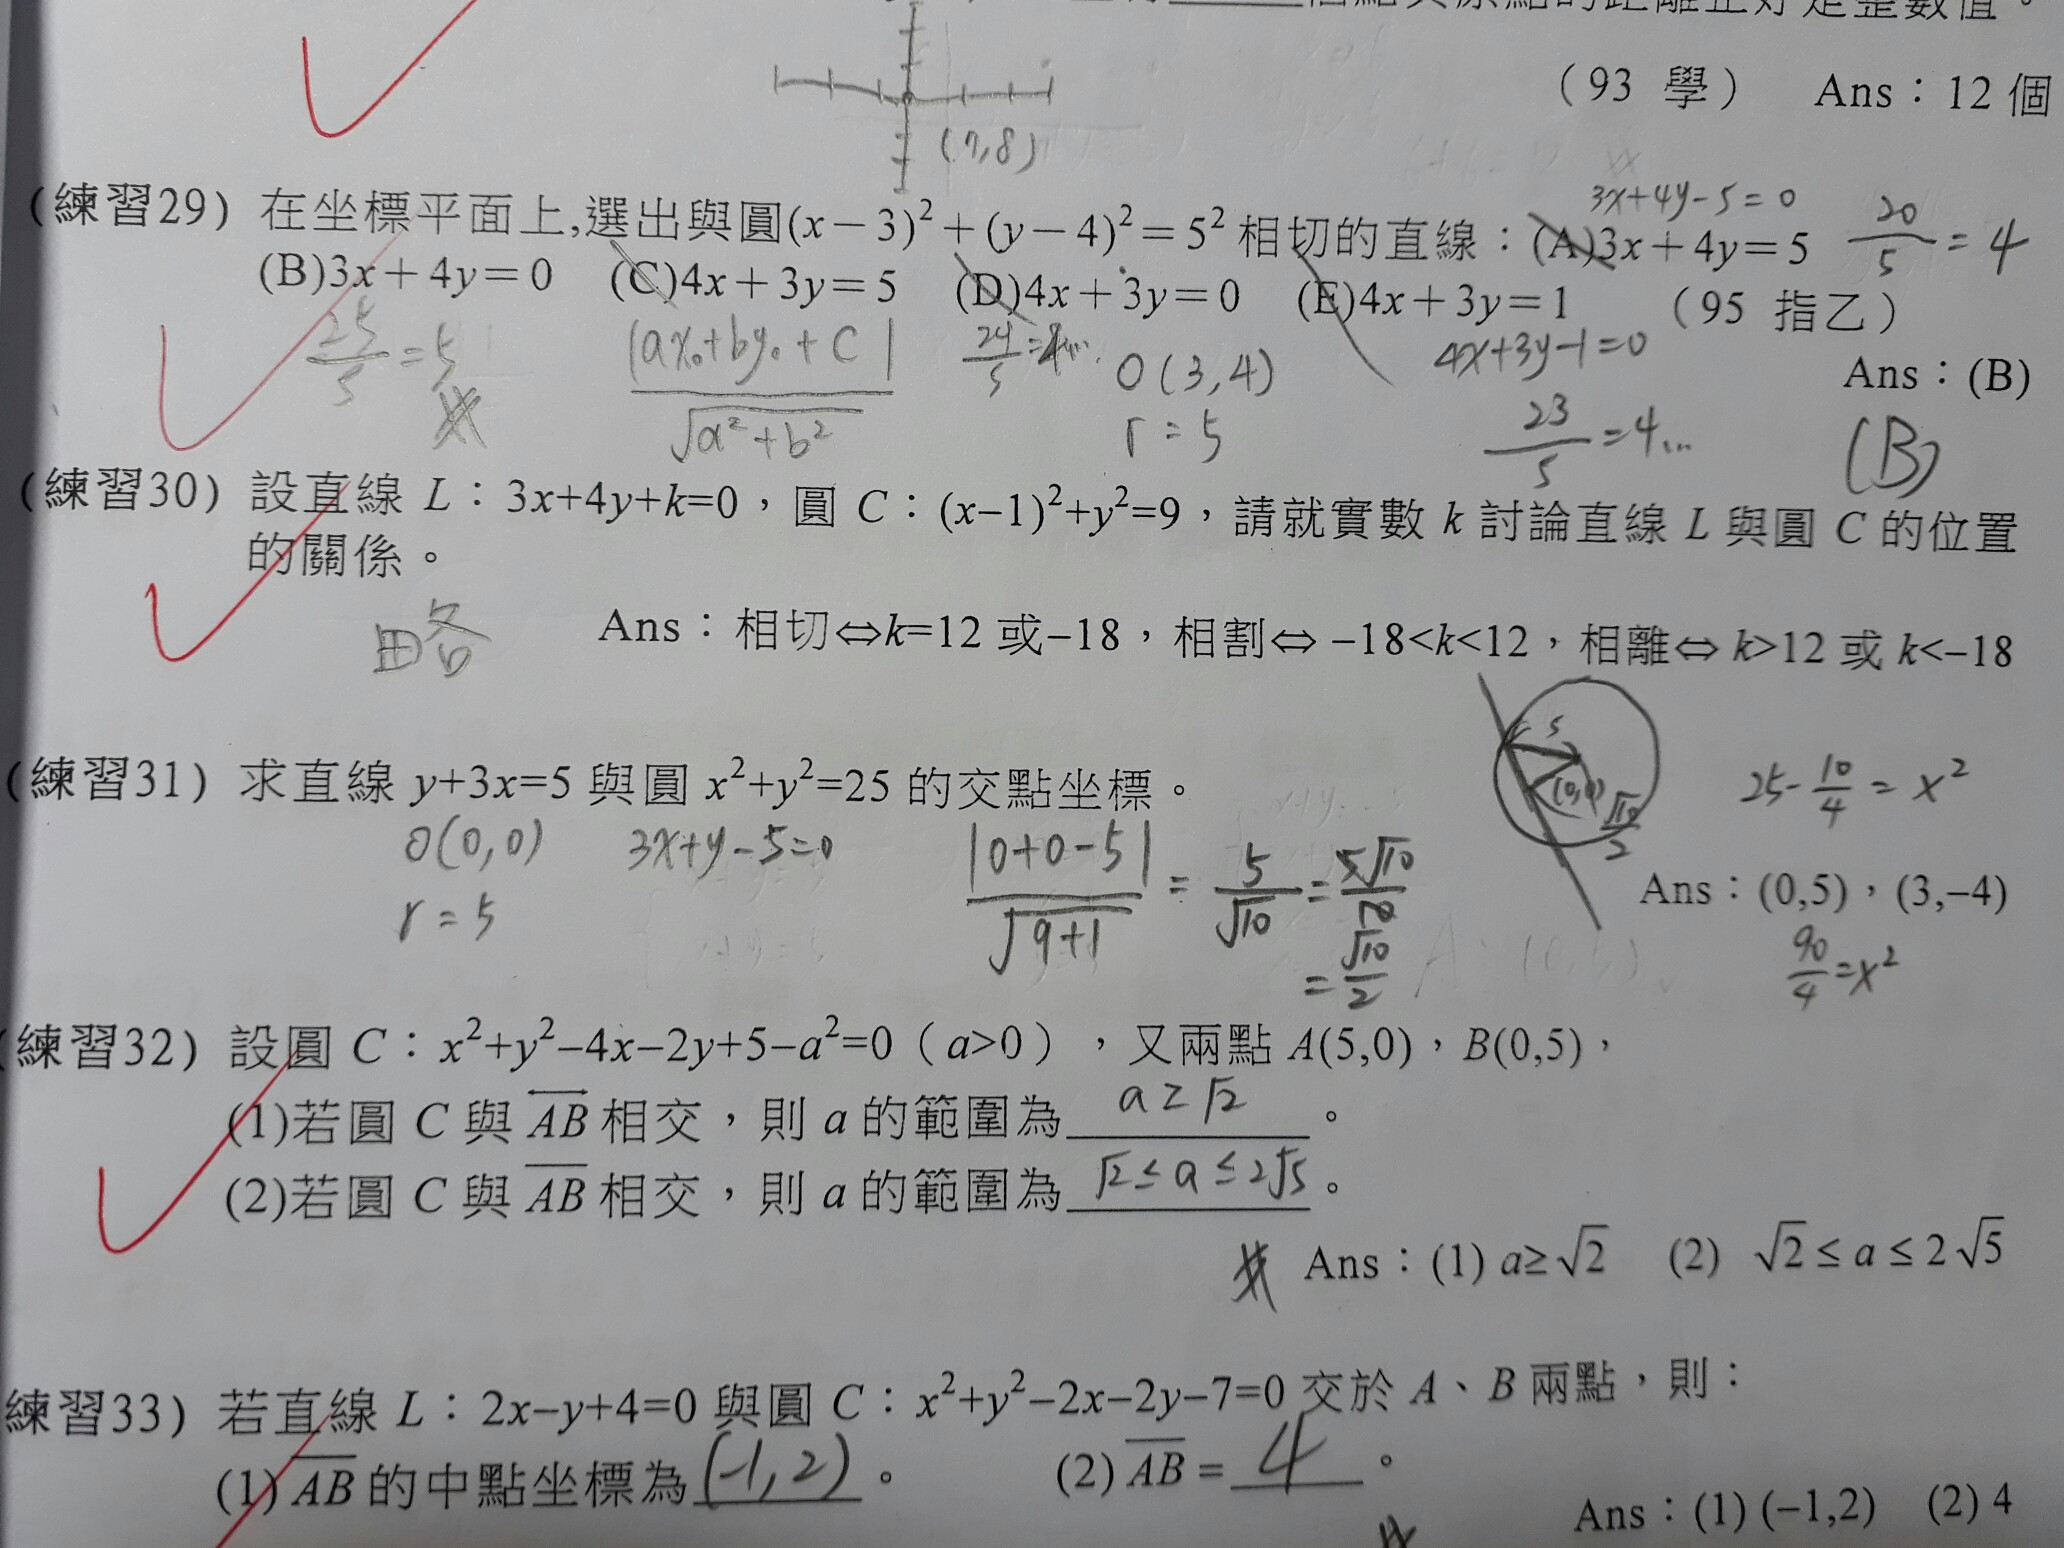 個點與原點的距離正好是整數值。
(7,8)
（93 學） Ans：12 個
3x+4y-5=0
(練習29) 在坐標平面上,選出與圓(x－3)²＋(y－4)²＝5² 相切的直線：(A)3x＋4y＝5 20/5 = 4
(B)3x＋4y＝0 (C)4x＋3y＝5 (D)4x＋3y＝0 (E)4x＋3y＝1 （95 指乙）
25/5 = 5 |ax₀+by₀+c|/√(a²+b²) 24/5 = 4... O(3,4) 4x+3y-1=0
Ans：(B)
r = 5 23/5 = 4... (B)
(練習30) 設直線 L：3x+4y+k=0，圓 C：(x–1)²+y²=9，請就實數 k 討論直線 L 與圓 C 的位置
的關係。
略 Ans：相切⇔k=12 或–18，相割⇔ –18<k<12，相離⇔ k>12 或 k<–18
(練習31) 求直線 y+3x=5 與圓 x²+y²=25 的交點坐標。
5 (0,0) √10/2 25-10/4 = x²
O(0,0) 3x+y-5=0 |0+0-5|/√(9+1) = 5/√10 = 5√10/10
r = 5 = √10/2
Ans：(0,5)，(3,–4)
90/4 = x²
(練習32) 設圓 C：x²+y²–4x–2y+5–a²=0（a>0），又兩點 A(5,0)，B(0,5)，
(1)若圓 C 與 AB 相交，則 a 的範圍為 a≥√2 。
(2)若圓 C 與 AB 相交，則 a 的範圍為 √2≤a≤2√5 。
Ans：(1) a≥√2 (2) √2 ≤ a ≤ 2√5
練習33) 若直線 L：2x–y+4=0 與圓 C：x²+y²–2x–2y–7=0 交於 A、B 兩點，則：
(1) AB 的中點坐標為 (-1,2) 。 (2) AB = 4 。
Ans：(1) (–1,2) (2) 4